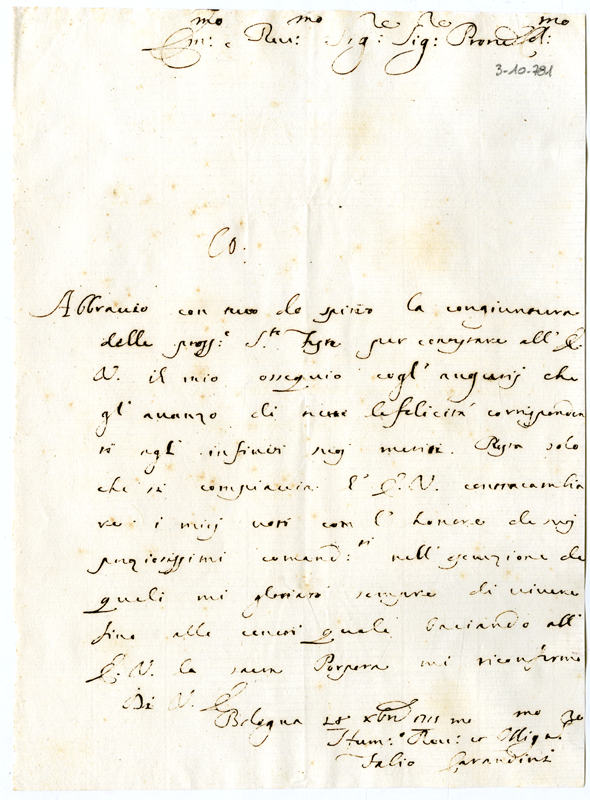 Em:mo e Reu:mo Sig:re Sig:re Prone Col:mo
3-10-781
Co.
Abbraccio con tutto lo spirito la congiuntura
delle pross:e S.te Feste per contestare all' E.
V. il mio ossequio cogl' augurij che
gl' auanzo di tutte le felicità corrisponden
ti agl' infiniti suoi meriti. Resta solo
che si compiaccia l' E. V. contracambia
re i miei uoti con l' honore de suoi
preziosissimi comand:ti nell' esecuzione de
quali mi gloriarò sempre di uiuere
fino alle ceneri quale baciando all'
E. V. la sacra Porpora mi riconfirmo
Di V. E.
Bologna xbre 1711
Hum:o Reu:te et Obliga:mo Sre